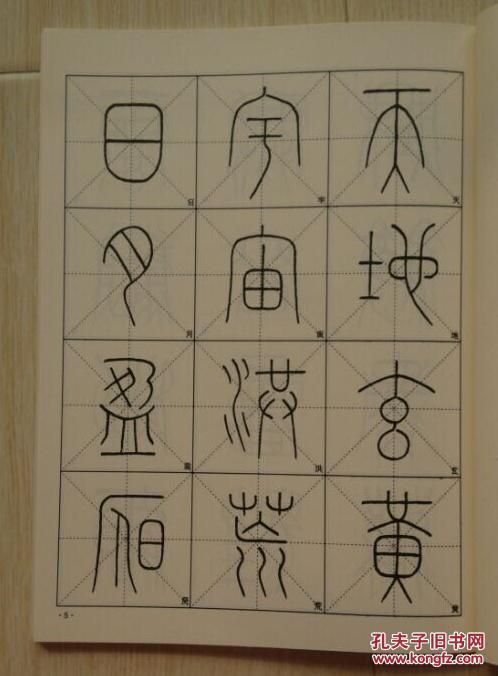 天地玄黄
宇宙洪荒
日月盈昃
·5·
孔夫子旧书网
WWW.KONGFZ.COM